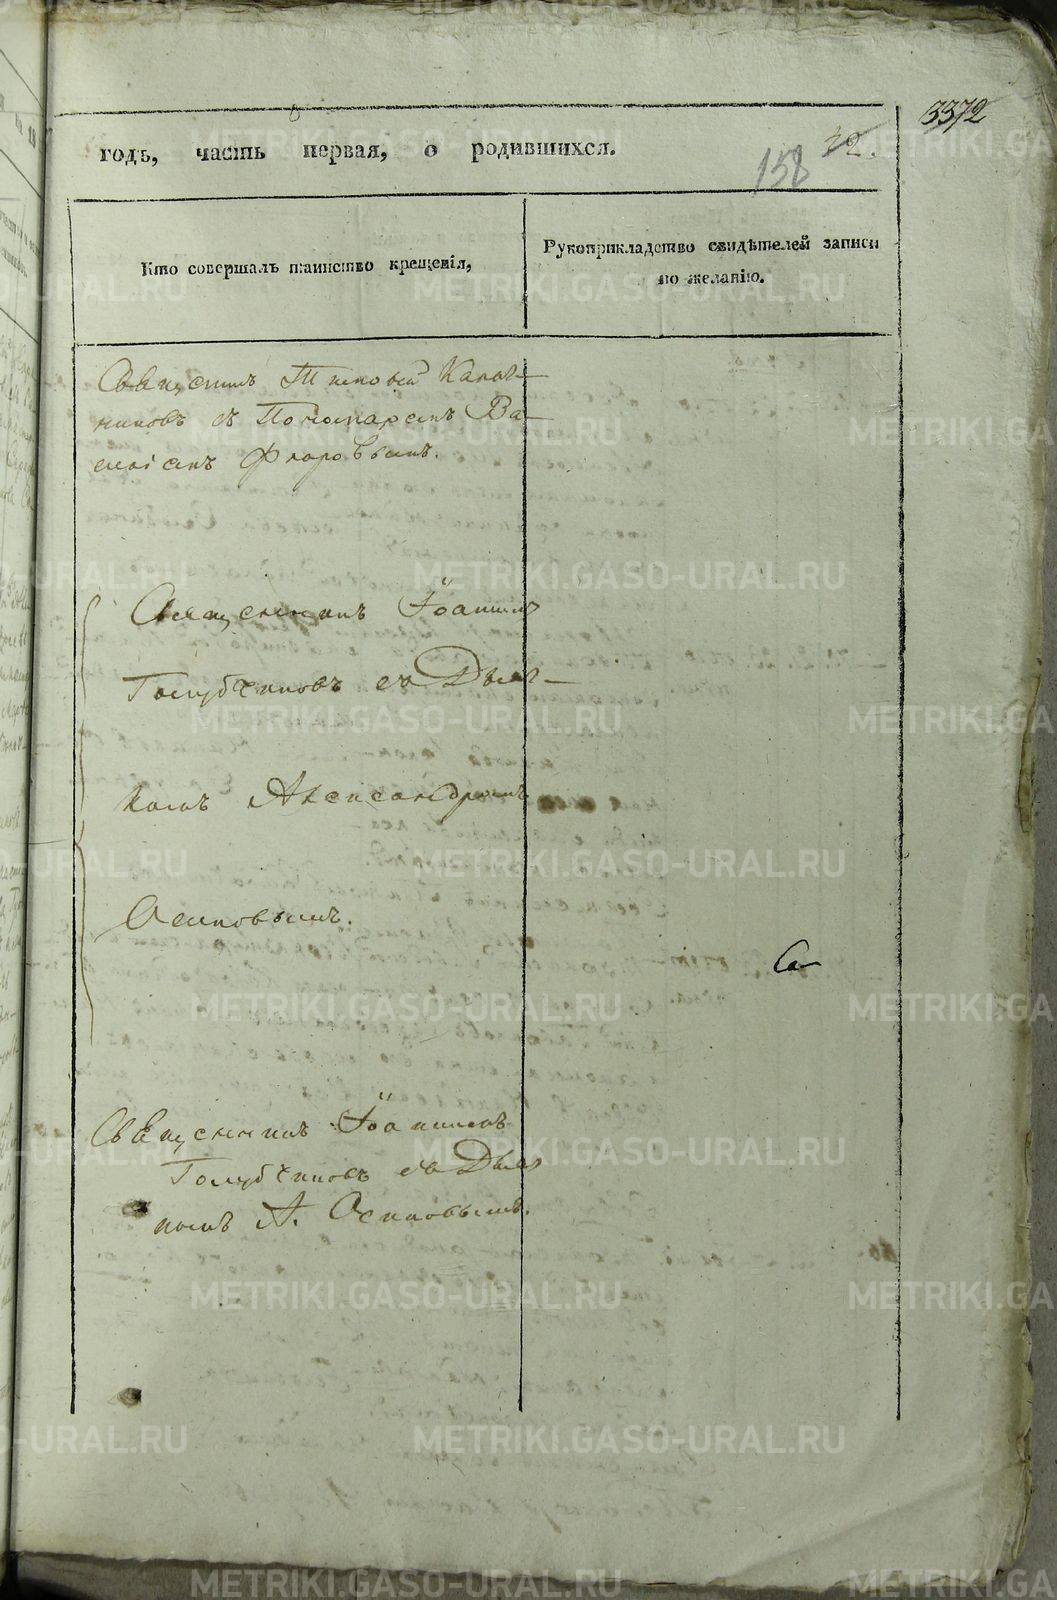 3372
годъ, часть первая, о родившихся.
32.
158
Кто совершалъ таинство крещенія,
Рукоприкладство свидѣтелей записи
по желанію.
Священникъ Тимофей
никовъ съ Пономаремъ Ва-
силіемъ Флоровымъ.
Священникъ Іоаннъ
Голубчиковъ со Дьяч-
комъ Александромъ
Осиповымъ.
Са
Священникъ Іоаннъ
Голубчиковъ со Дьяч
комъ А. Осиповымъ.
METRIKI.GASO-URAL.RU